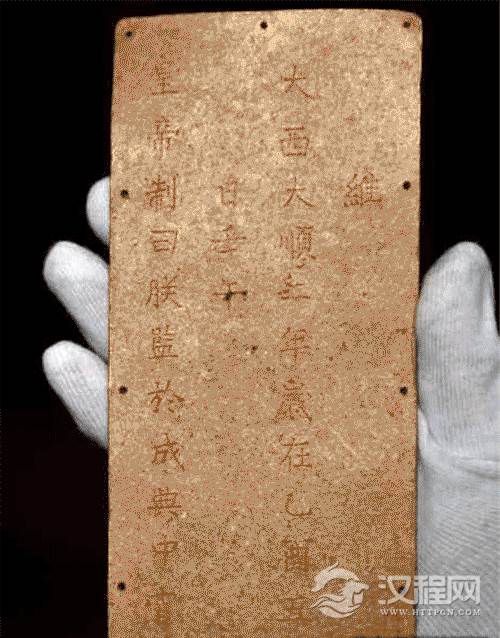 維
大西大順二年歲在乙酉五
日壬午
皇帝制曰朕監於成典中宮
汉程网
WWW.HTTPCN.COM